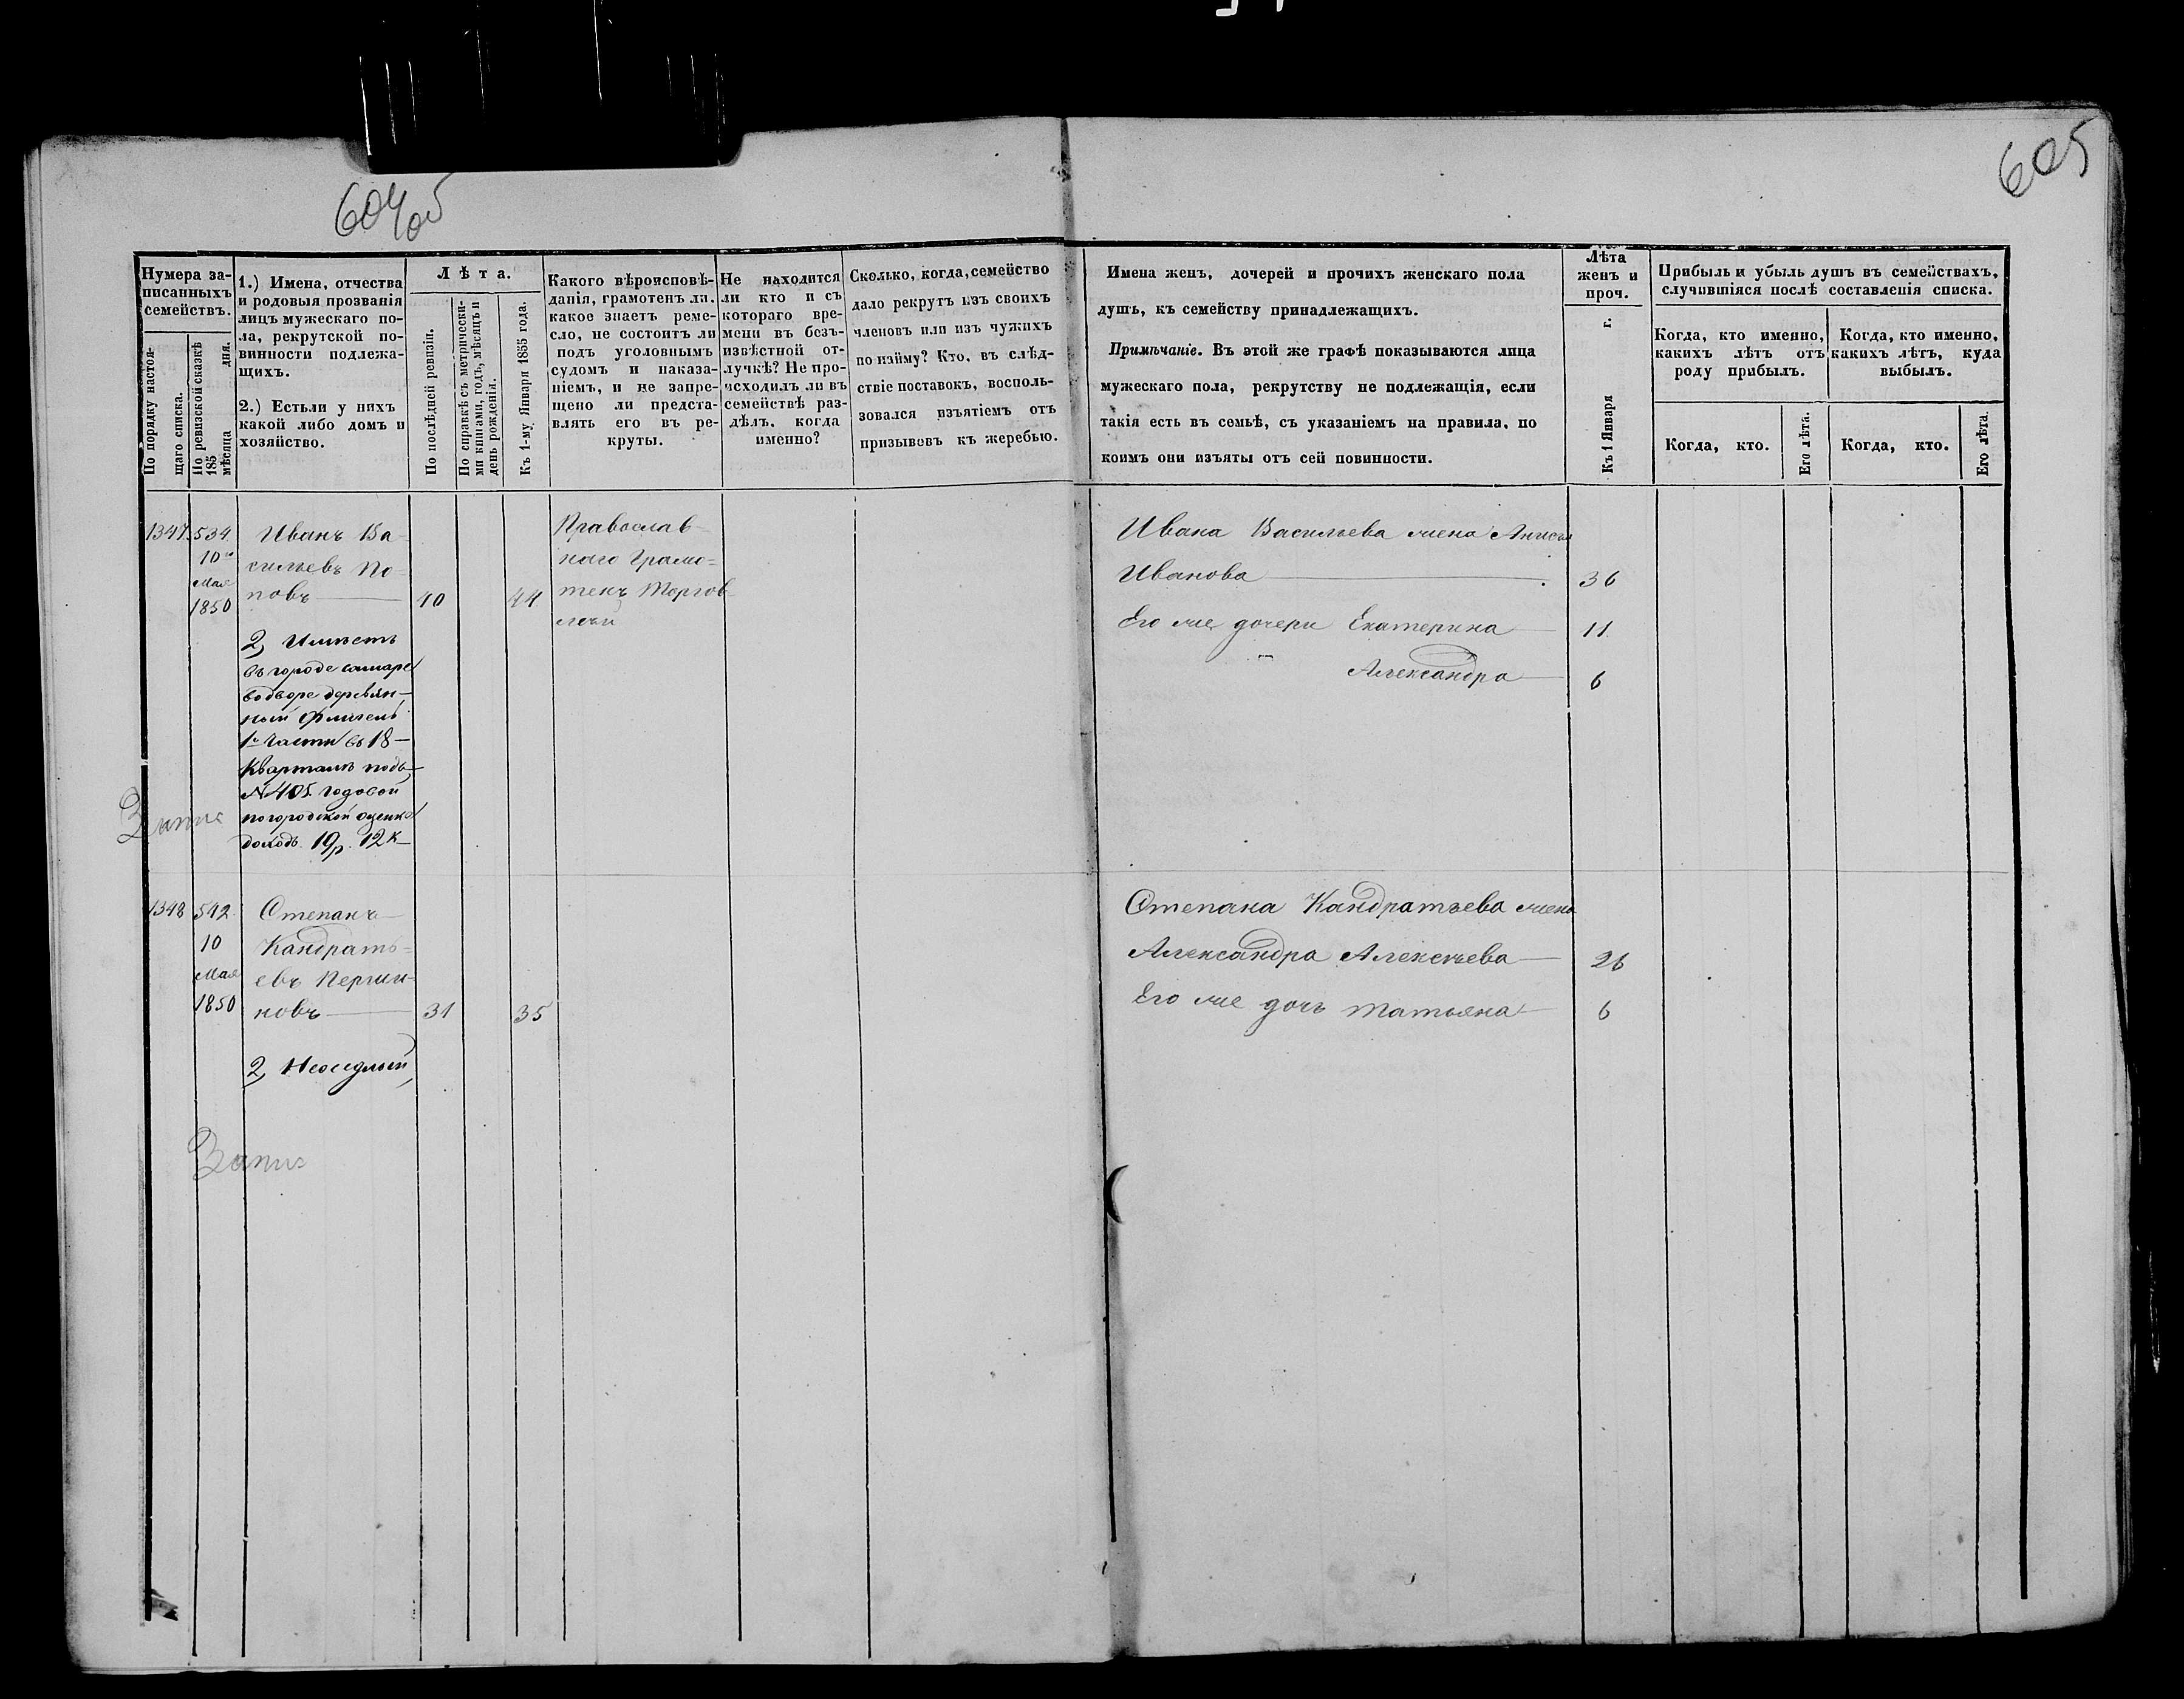 604 об
605
Нумера за-
писанныхъ
семействъ.
По порядку настоя-
щаго списка.
По ревизской сказкѣ
185 мѣсяца дня.
1.) Имена, отчества
и родовыя прозванія
лицъ мужескаго по-
ла, рекрутской по-
винности подлежа-
щихъ.
2.) Естьли у нихъ
какой либо домъ и
хозяйство.
Лѣта.
По послѣдней ревизіи.
По справкѣ съ метрически-
ми книгами, годъ, мѣсяцъ и
день рожденія.
Къ 1-му Января 1855 года.
Какого вѣроисповѣ-
данія, грамотенъ ли.
какое знаетъ реме-
сло, не состоитъ ли
подъ уголовнымъ
судомъ и наказа-
ніемъ, и не запре-
щено ли предста-
влять его въ ре-
круты.
Не находится
ли кто и съ
котораго вре-
мени въ безъ-
извѣстной от-
лучкѣ? Не про-
исходилъ ли въ
семействѣ раз-
дѣлъ. когда
именно?
Сколько, когда, семейство
дало рекрутъ изъ своихъ
членовъ или изъ чужихъ
по найму? Кто, въ слѣд-
ствіе поставокъ, восполь-
зовался изъятіемъ отъ
призывовъ къ жеребью.
Имена женъ, дочерей и прочихъ женскаго пола
душъ, къ семейству принадлежащихъ.
Примѣчаніе. Въ этой же графѣ показываются лица
мужескаго пола, рекрутству не подлежащія, если
такія есть въ семьѣ, съ указаніемъ на правила, по
коимъ они изъяты отъ сей повинности.
Лѣта
женъ и
проч.
Къ 1 Января г.
Прибыль и убыль душъ въ семействахъ,
случившіяся послѣ составленія списка.
Когда, кто именно,
какихъ лѣтъ отъ
роду прибылъ.
Когда, кто именно,
какихъ лѣтъ, куда
выбылъ.
Когда, кто.
Его лѣта.
Когда, кто.
Его лѣта.
1347. 534.
10го
Мая
1850
Иванъ Ва-
сильевъ По-
повъ 40 44
Православ-
наго Грамо-
тенъ Торгов-
лей
2, Имѣетъ
въ городе самаре
во дворе деревян-
ный флигель
1й части въ 18-
Кварталѣ подъ
№ 405. годовой
по городской оценке
доходъ 19р. 12к
Запис
Ивана Васильева жена Анисья
Иванова 36
Его же дочери Екатерина 11
Александра 6
1348 542
10
Мая
1850
Степанъ
Кандрать-
евъ Першин-
ковъ 31 35
2, Неоседлый
Запис
Степана Кандратьева жена
Александра Алексѣева 26
Его же дочь Татьяна 6